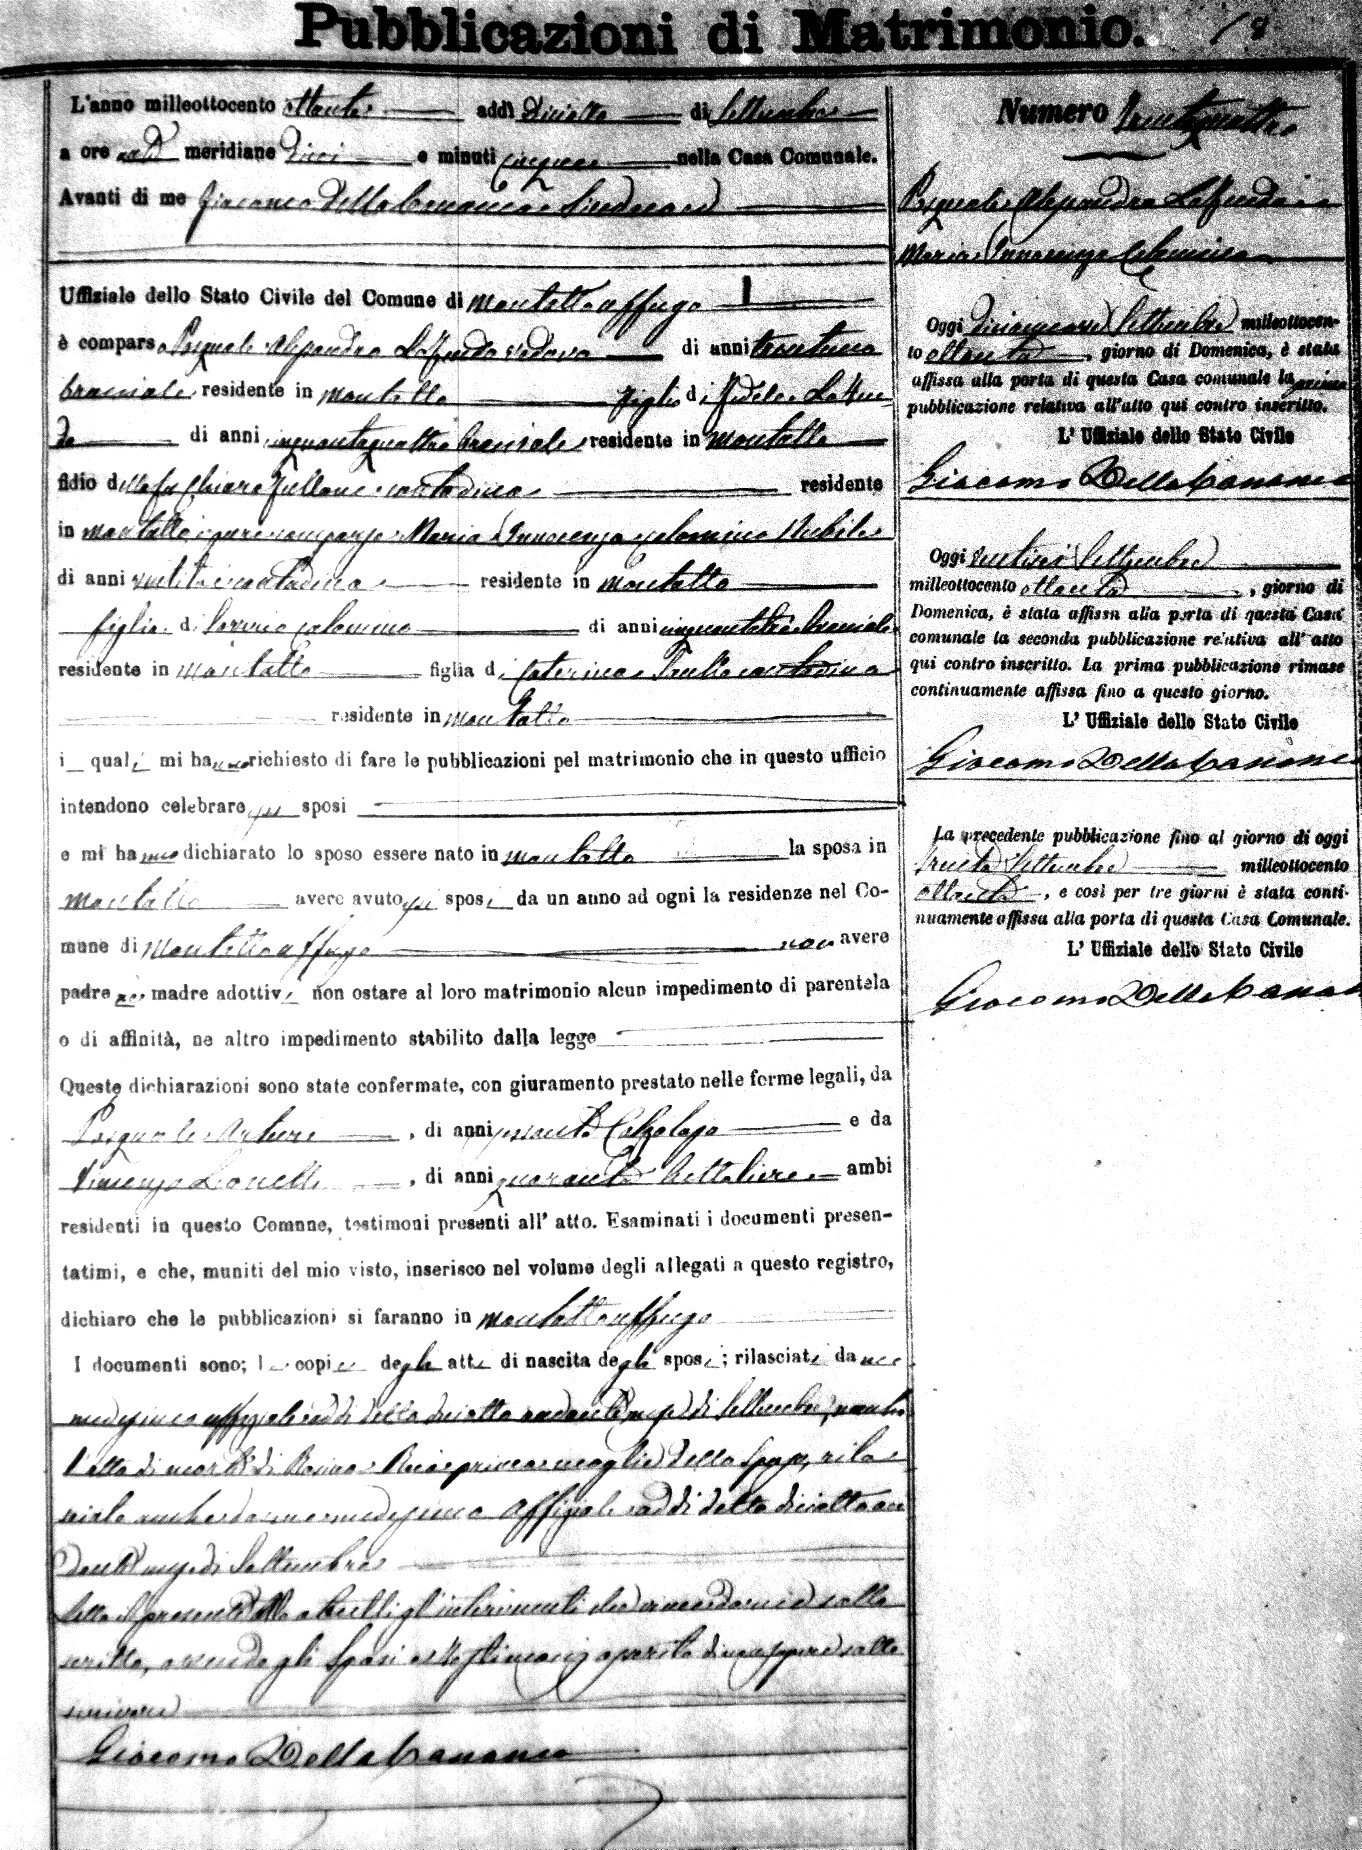 Pubblicazioni di Matrimonio. 18
L'anno milleottocento ottanta addì diciotto di Settembre
a ore antd meridiane dieci e minuti cinque nella Casa Comunale.
Avanti di me Giacomo Della Cananea Sindaco
Uffiziale dello Stato Civile del Comune di Montalto uffugo
è comparso Pasquale Alessandro La Zuada vedovo di anni trentuno
bracciale residente in Montalto figlio di Fedele
di anni cinquantaquattro bracciale residente in Montalto
fidio della fu Chiara contadina residente
in Montalto e pure comparsa Maria Innocenza Nubile
di anni contadina residente in Montalto
figlia di di anni cinquantatre bracciale
residente in Montalto figlia di Caterina contadina
residente in Montalto
i quali mi hanno richiesto di fare le pubblicazioni pel matrimonio che in questo ufficio
intendono celebrare gli sposi
e mi hanno dichiarato lo sposo essere nato in Montalto la sposa in
Montalto avere avuto gli sposi da un anno ad ogni la residenze nel Co-
mune di Montalto uffugo non avere
padre ne madre adottivi non ostare al loro matrimonio alcun impedimento di parentela
o di affinità, ne altro impedimento stabilito dalla legge
Queste dichiarazioni sono state confermate, con giuramento prestato nelle forme legali, da
Pasquale Arturi, di anni sessanta Calzolajo e da
Vincenzo Lionelli, di anni quaranta Bettoliere ambi
residenti in questo Comune, testimoni presenti all' atto. Esaminati i documenti presen-
tatimi, e che, muniti del mio visto, inserisco nel volume degli allegati a questo registro,
dichiaro che le pubblicazioni si faranno in Montalto uffugo
I documenti sono; le copie degli atti di nascita degli sposi; rilasciati da me
medesimo uffiziale addi detto diciotto andante mese di Settembre,
l'atto di morte di Rosina prima moglie dello Sposo, rila
sciato anche da me medesimo Uffiziale addi detto diciotto an
dante mese di Settembre
Letto il presente atto a tutti gl'intervenuti solo sotto
scritto, avendo gli Sposi e testimoni asserito di non sapere sotto
scrivere
Giacomo Della Cananea
Numero trentaquattro
Pasquale Alessandro La Zuada
Maria Innocenza
Oggi diciannove Settembre milleottocen-
to ottanta, giorno di Domenica, è stata
affissa alla porta di questa Casa comunale la prima
pubblicazione relativa all'atto qui contro inscritto.
L' Uffiziale dello Stato Civile
Giacomo Della Cananea
Oggi ventisei Settembre
milleottocento ottanta, giorno di
Domenica, è stata affissa alla porta di questa Casa
comunale la seconda pubblicazione relativa all' atto
qui contro inscritto. La prima pubblicazione rimase
continuamente affissa fino a questo giorno.
L' Uffiziale dello Stato Civile
Giacomo Della Cananea
La precedente pubblicazione fino al giorno di oggi
trenta Settembre milleottocento
ottanta, e così per tre giorni è stata conti-
nuamente affissa alla porta di questa Casa Comunale.
L' Uffiziale dello Stato Civile
Giacomo Della Cananea